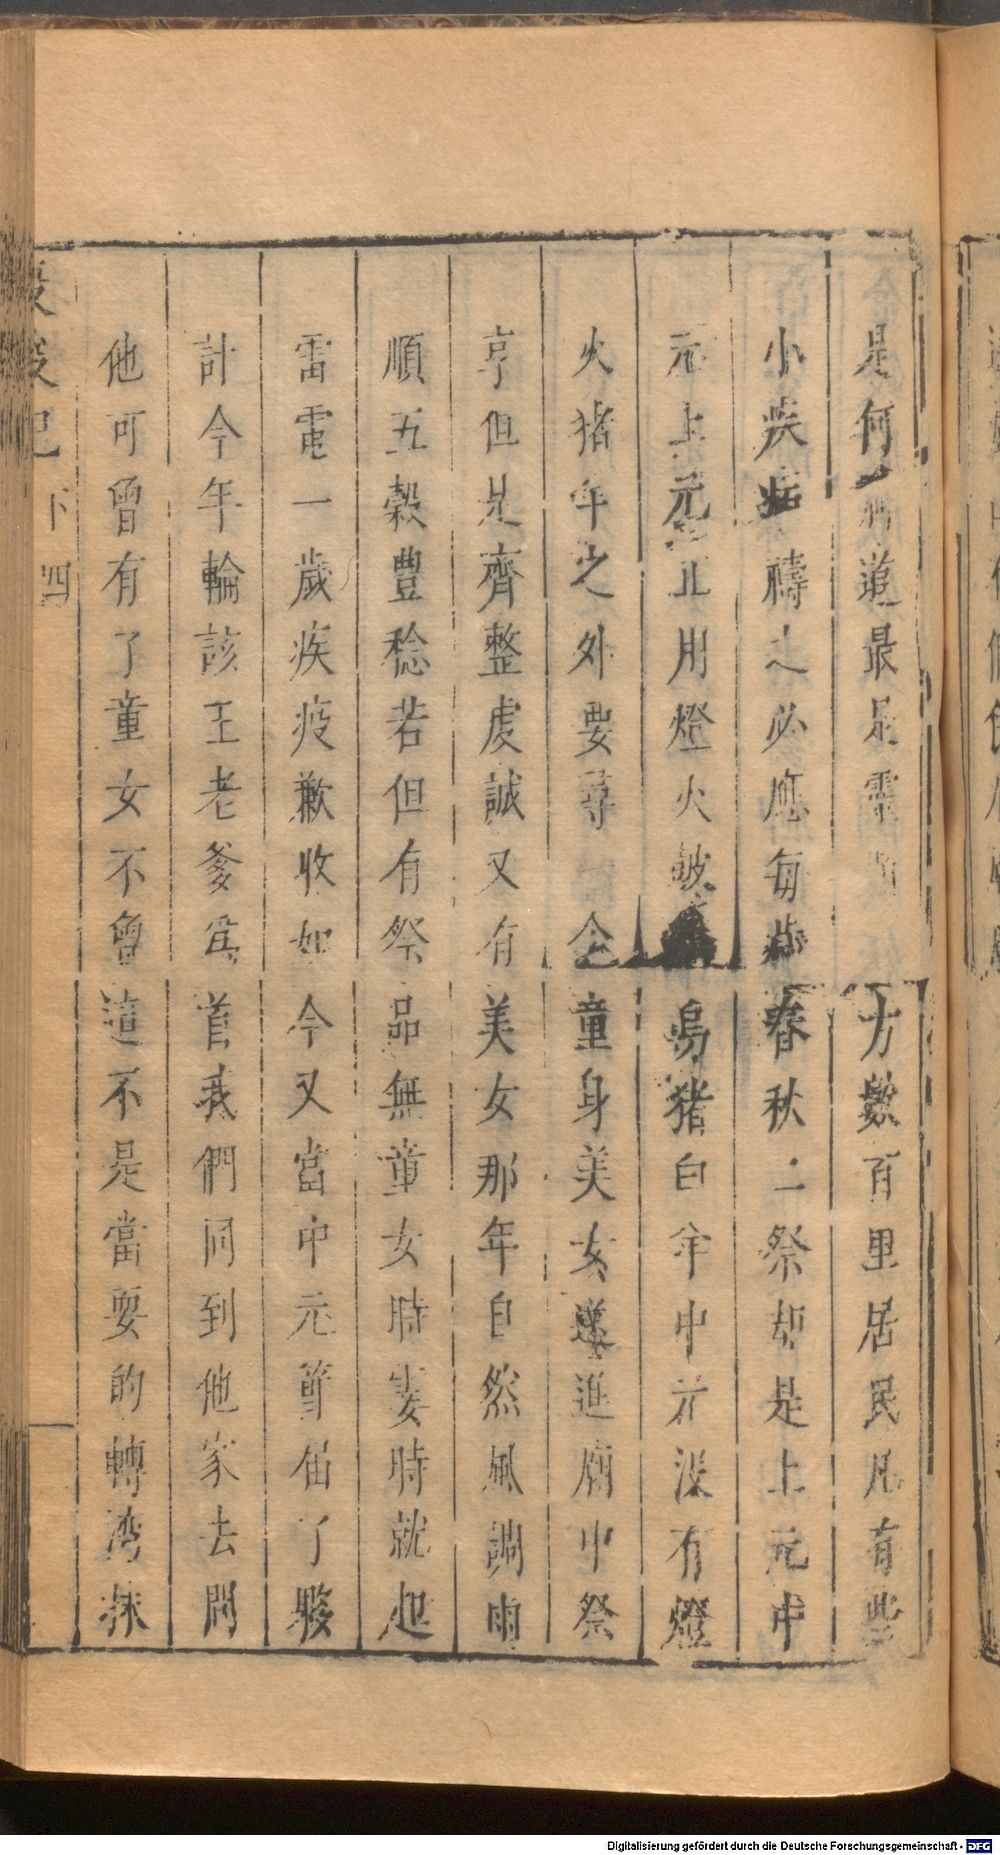 是何道最是靈方數百里居民凡有些
小疾病禱之必應每歲春秋二祭却是上元中
元上元止用燈火烏猪白羊中元沒有燈
火猪羊之外要尋一个童身美女送進廟中祭
享但是齊整虔誠又有美女那年自然風調雨
順五穀豐稔若但有祭品無童女時霎時就起
雷電一歲疾疫歉收如今又當中元節届了夥
計今年輪該王老爹爲首我們同到他家去問
他可曾有了童女不曾這不是當耍的轉湾抹
下 四
Digitalisierung gefördert durch die Deutsche Forschungsgemeinschaft - DFG